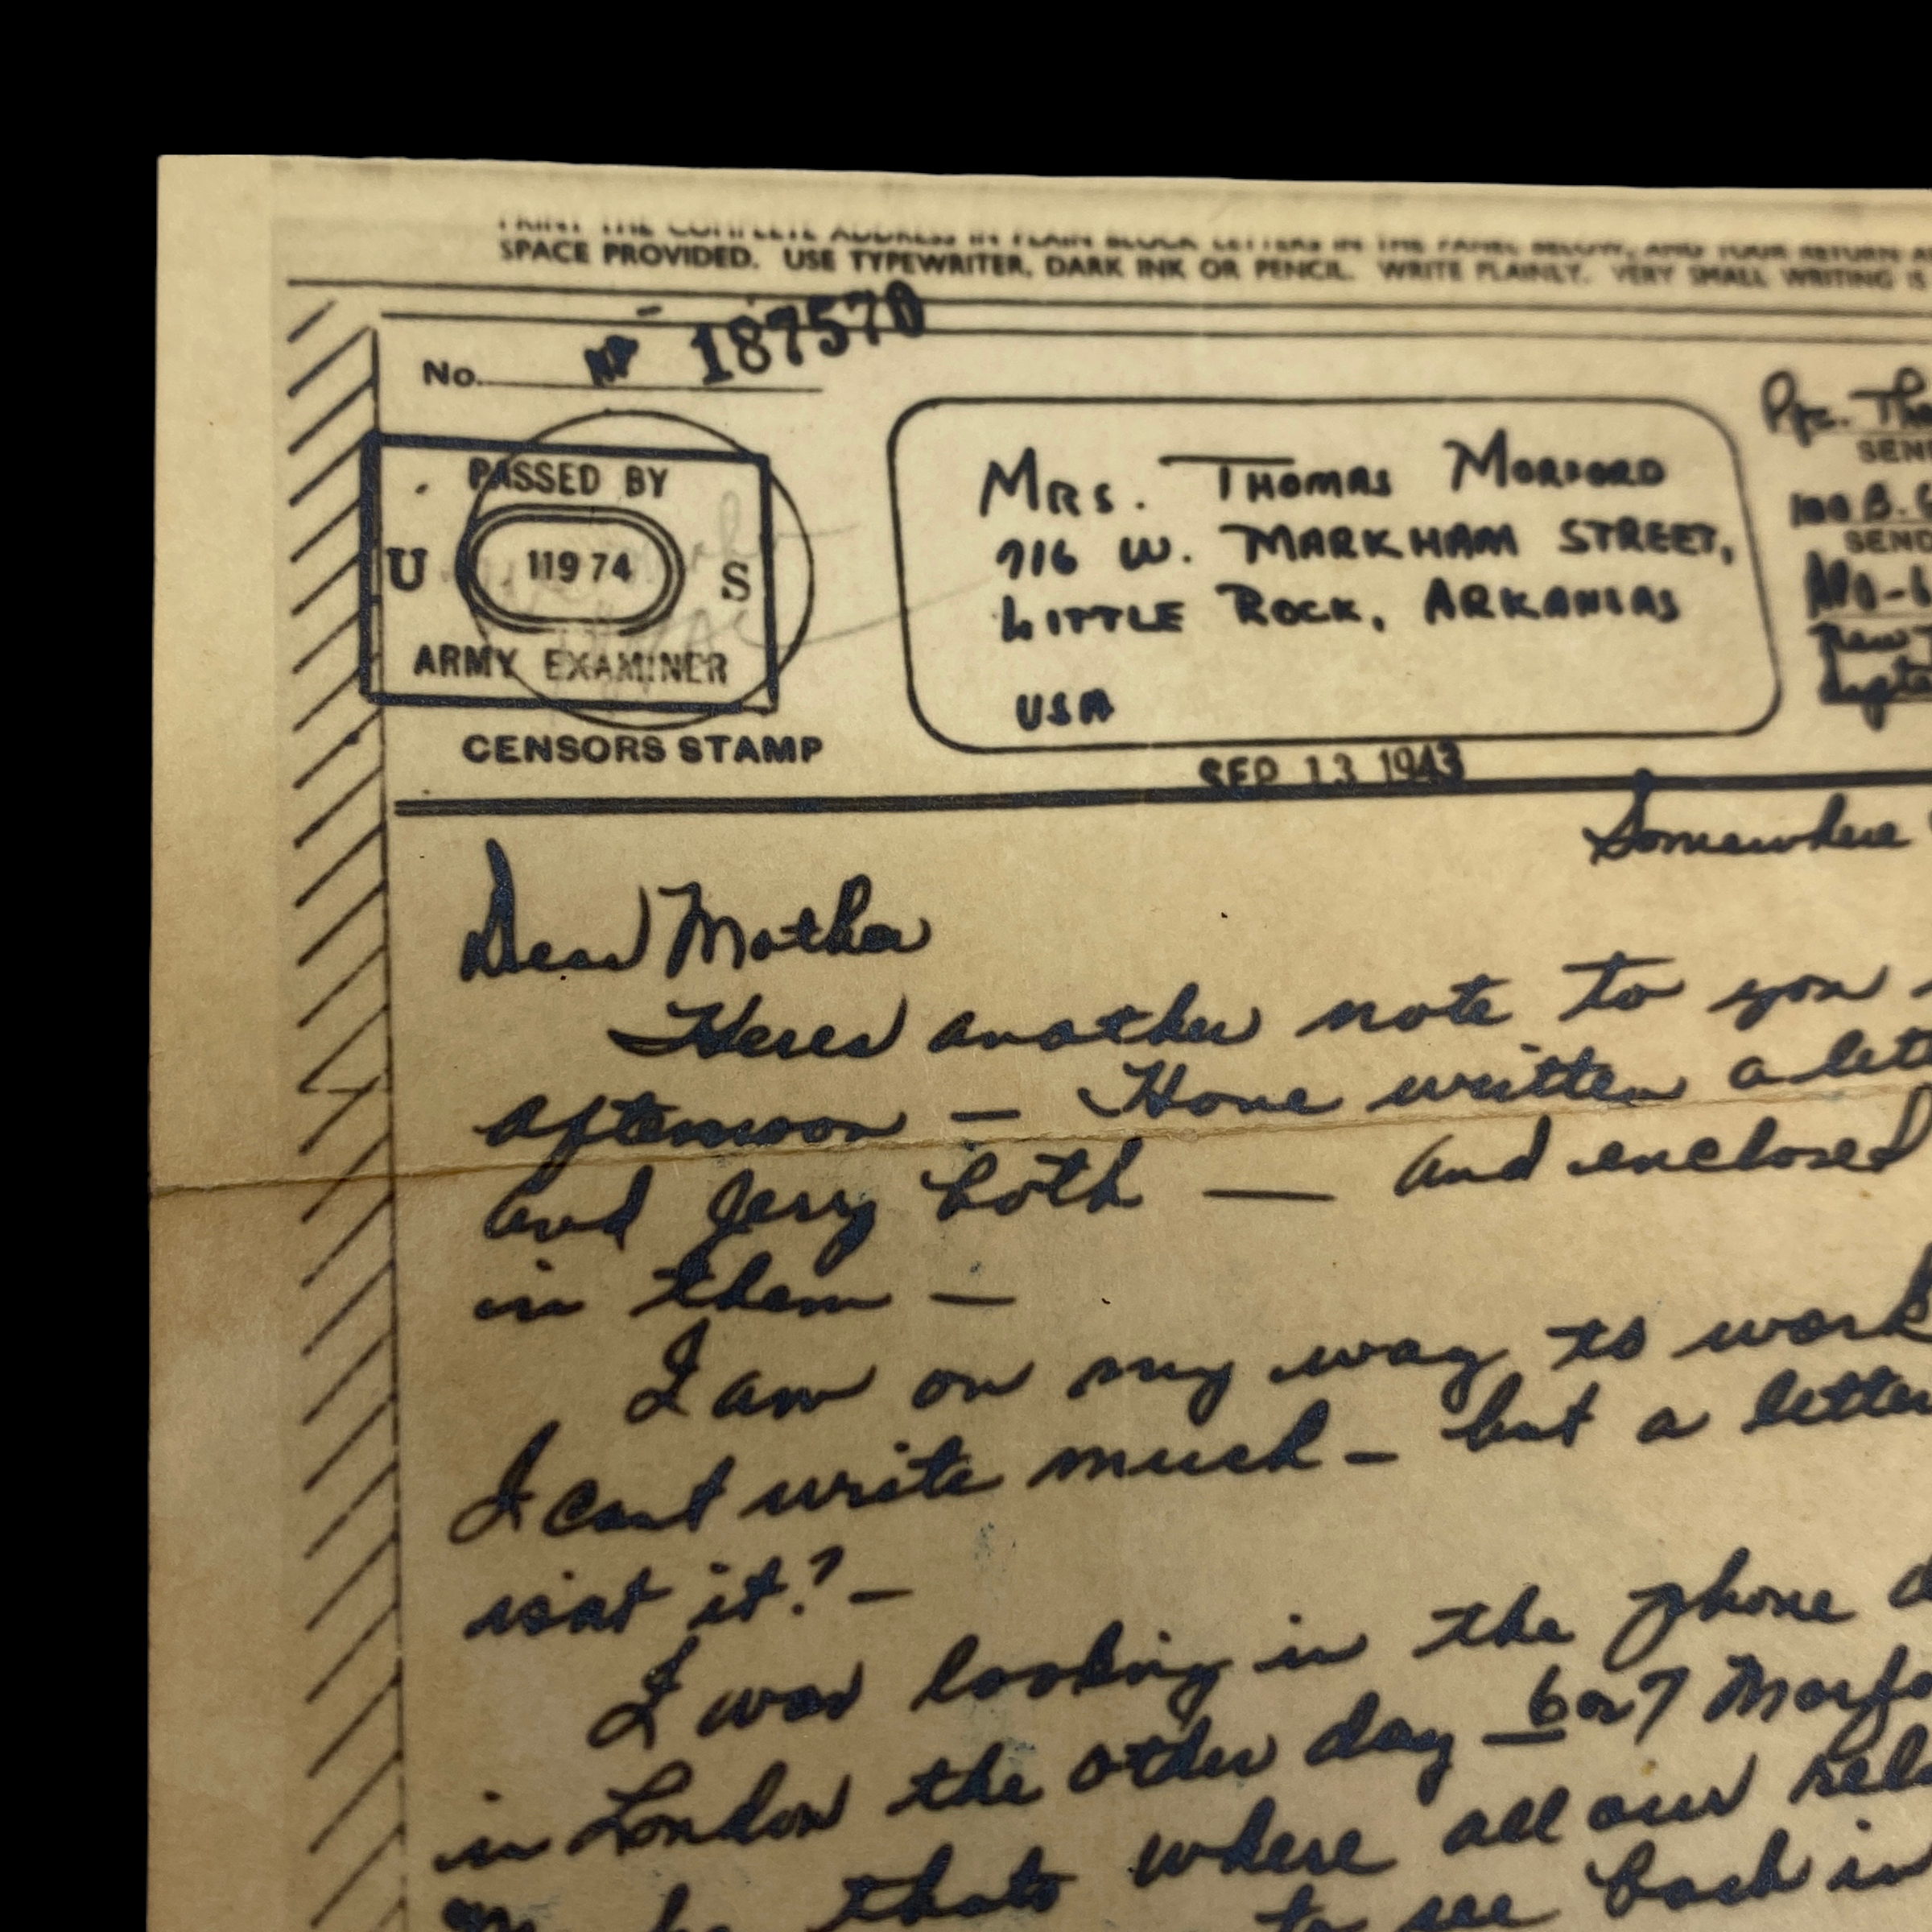 PRINT THE COMPLETE ADDRESS IN PLAIN BLOCK LETTERS IN THE PANEL BELOW, AND YOUR RETURN
SPACE PROVIDED. USE TYPEWRITER, DARK INK OR PENCIL. WRITE PLAINLY. VERY SMALL WRITING IS
No. 187570
PASSED BY
U 11974 S
ARMY EXAMINER
CENSORS STAMP
MRS. THOMAS MORFORD
716 W. MARKHAM STREET,
LITTLE ROCK, ARKANSAS
USA
Pfc. Tho
SEN
SEND
APO-
New
SEP 13 1943
Somewhere
Dear Mother
Heres another note to you
afternoon — Have written a lett
and Jerry both — and enclosed
in them —
I am on my way to work
I cant write much - but a letter
isnt it? —
I was looking in the phone d
in London the other day 6 or 7 Morfo
thats where all our rela
to see back in